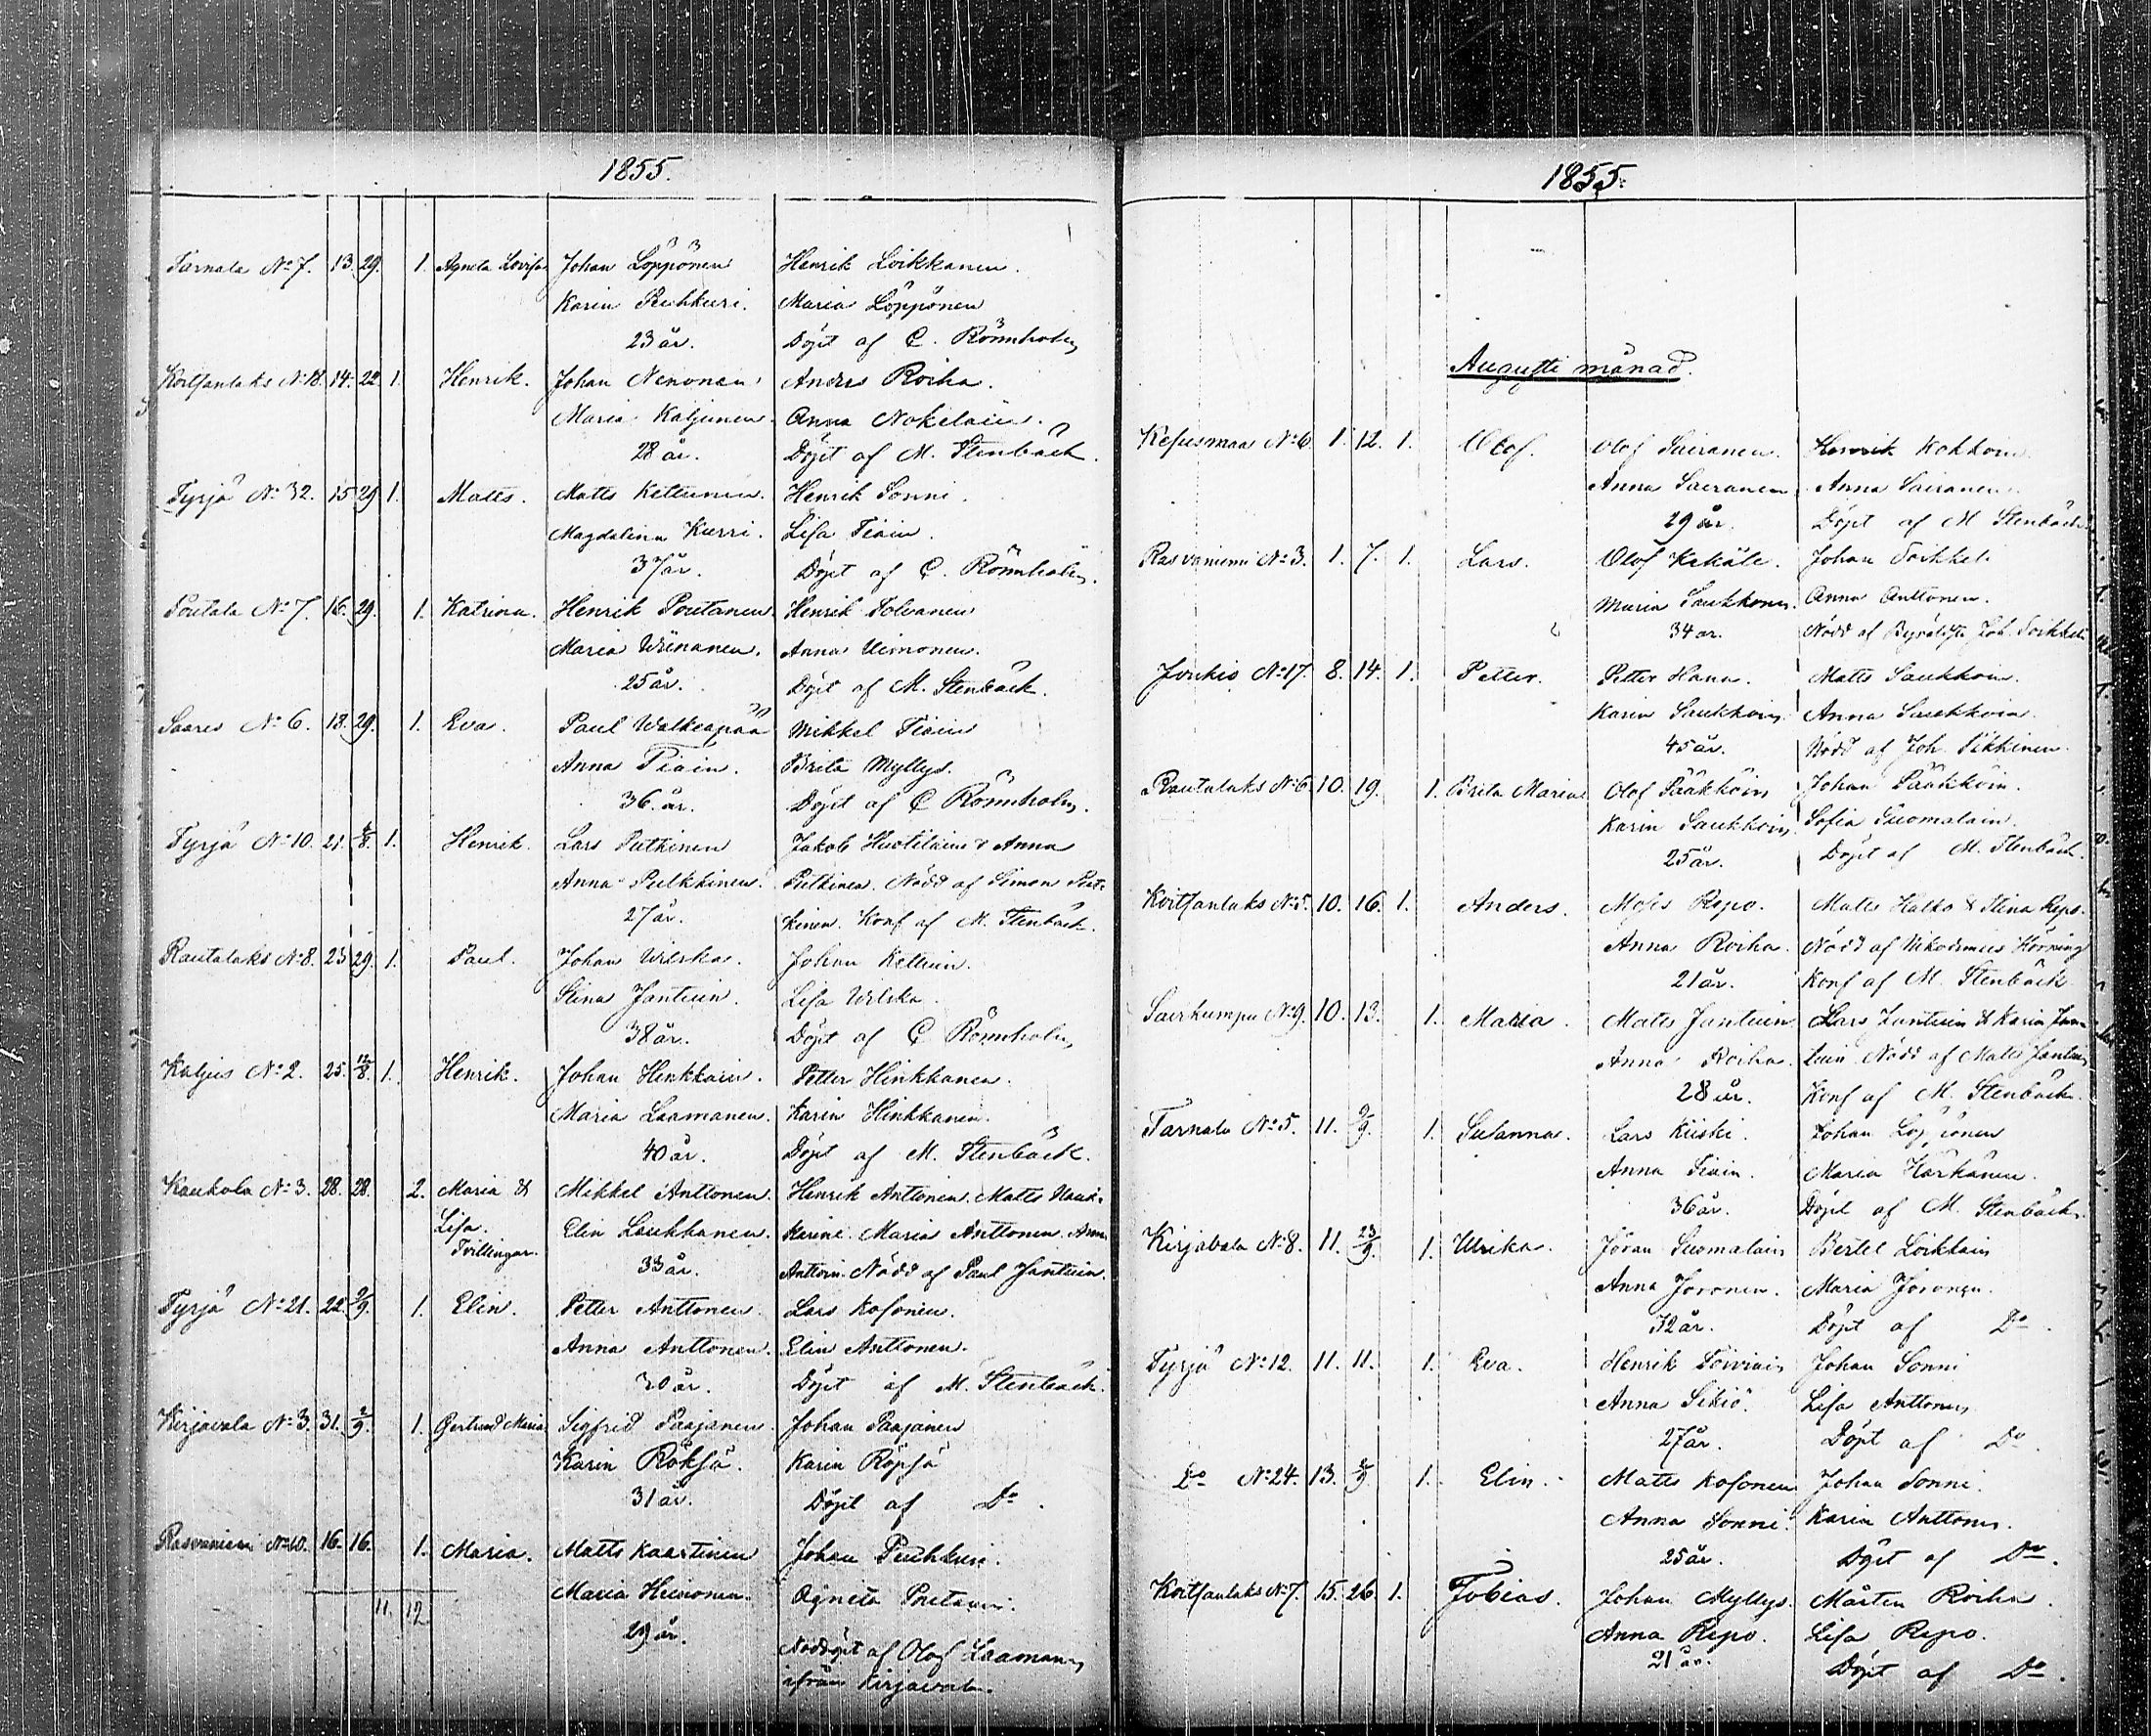 1855.
Tarnala No 7. 13. 29. 1. Agneta Lovisa Johan Löppönen Henrik Loikkanen.
Karin Puhkuri. Maria Löppönen
23 år. Döpt af C. Rönnholm
Koitsanlaks No 18. 14. 22. 1. Henrik. Johan Nenonen Anders Roiha.
Maria Kaljunen Anna Nokelain.
28 år. Döpt af M. Stenbäck.
Tyrjä No 32. 15 29 1. Matts. Matts Kettunen. Henrik Sonni.
Magdalena Kurri. Lisa Tiain.
37 år. Döpt af C. Rönnholm.
Poutala No 7. 16. 29. 1. Katrina. Henrik Poutanen Henrik Tolvanen
Maria Anna Uimonen.
25 år. Döpt af M. Stenbäck.
Saares No 6. 18. 29. 1. Eva. Paul Walkeapää Mikkel Tiain
Anna Tiain. Brita Myllys.
36 år. Döpt af C Rönnholm.
Tyrjä No 10. 21. 1. Henrik. Lars Putkinen Jakob Huotilain & Anna
Anna Pulkkinen. Putkinen. Nödd af Simon Put-
27 år. kinen. Konf af M. Stenbäck.
Rautalaks No 8. 23 29. 1. Paul. Johan Wilska. Johan Kettuin.
Stina Jantuin. Lisa Wilska.
38 år. Döpt af C Rönnholm
Kaljus No 2. 25. 12/8 1. Henrik. Johan Hinkkain. Petter Hinkkanen.
Maria Laamanen. Karin Hinkkanen.
40 år. Döpt af M. Stenbäck.
Kaukola No 3. 28. 28. 2. Maria & Mikkel Anttonen. Henrik Anttonen. Matts
Lisa. Elin Laukkanen. Maria Anttonen. Anna
Tvillingar. 33 år. Anttoin. Nödd af Paul Jantuin.
Tyrjä No 21. 22. 2/9. 1. Elin. Petter Anttonen Lars Kosonen.
Anna Anttonen. Elin Anttonen.
30 år. Döpt af M. Stenbäck.
Kirjavala No 3. 31. 2/9. 1. Gertrud Maria Sigfrid Paajanen Johan Paajanen
Karin Röksä. Karin Röpsä
31 år. Döpt af Do.
Rasvaniemi No 10. 16. 16. 1. Maria. Matts Kaartinen Johan Puhkuri.
Maria Agneta
11. 12 29 år. Nöddöpt af Olof Laamanen
ifrån Kirjavala.
1855.
Augusti månad.
Kesusmaa No 6. 1. 12. 1. Olof. Olof Sairanen. Henrik Kokkoin.
Anna Sairanen Anna Sairanen.
29 år. Döpt af M Stenbäck.
Rasvaniemi No 3. 1. 7. 1. Lars. Olof Kekäle. Johan Toikkel.
Maria Saukkonen. Anna Anttonen.
34 år. Nödd af Joh. Toikkel
Joukio No 17. 8. 14. 1. Petter. Petter Hann. Matts Saukkoin.
Karin Saukkoin Anna Saukkoin.
45 år. Nödd af Joh. Tikkinen.
Rautalaks No 6. 10. 19. 1. Brita Maria Olof Pääkköin Johan Pääkköin.
Karin Saukkoin Sofia Suomalain.
25 år. Döpt af M. Stenbäck.
Koitsanlaks No 5. 10. 16. 1. Anders. Moses Repo. Matts Halko & Stina Repo.
Anna Roiha. Nödd af Nikodemus
21 år. Konf af M. Stenbäck
Saarkumpu No 9. 10. 13. 1. Maria. Matts Jantuin Lars Jantuin & Karin Jan-
Anna Roiha. tuin. Nödd af Matts Jantuin
28 år. Konf af M. Stenbäck.
Tarnala No 5. 11. 2/9. 1. Susanna. Lars Kiiski. Johan Löppönen
Anna Tiain. Maria Härkänen.
36 år. Döpt af M. Stenbäck.
Kirjavala No 8. 11. 23/9. 1. Ulrika. Jöran Suomalain Bertel Loikkain
Anna Joronen. Maria Joronen.
32 år. Döpt af Do.
Tyrjä No 12. 11. 11. 1. Eva. Henrik Toiviain Johan Sonni
Anna Sikiö. Lisa Anttonen
27 år. Döpt af Do.
Do No 24. 13. 2/9 1. Elin. Matts Kosonen Johan Sonni.
Anna Sonni. Karin Anttonen.
25 år. Döpt af Do.
Koitsanlaks No 7. 15. 26. 1. Tobias. Johan Myllys. Mårten Roiha.
Anna Repo. Lisa Repo.
21 år. Döpt af Do.